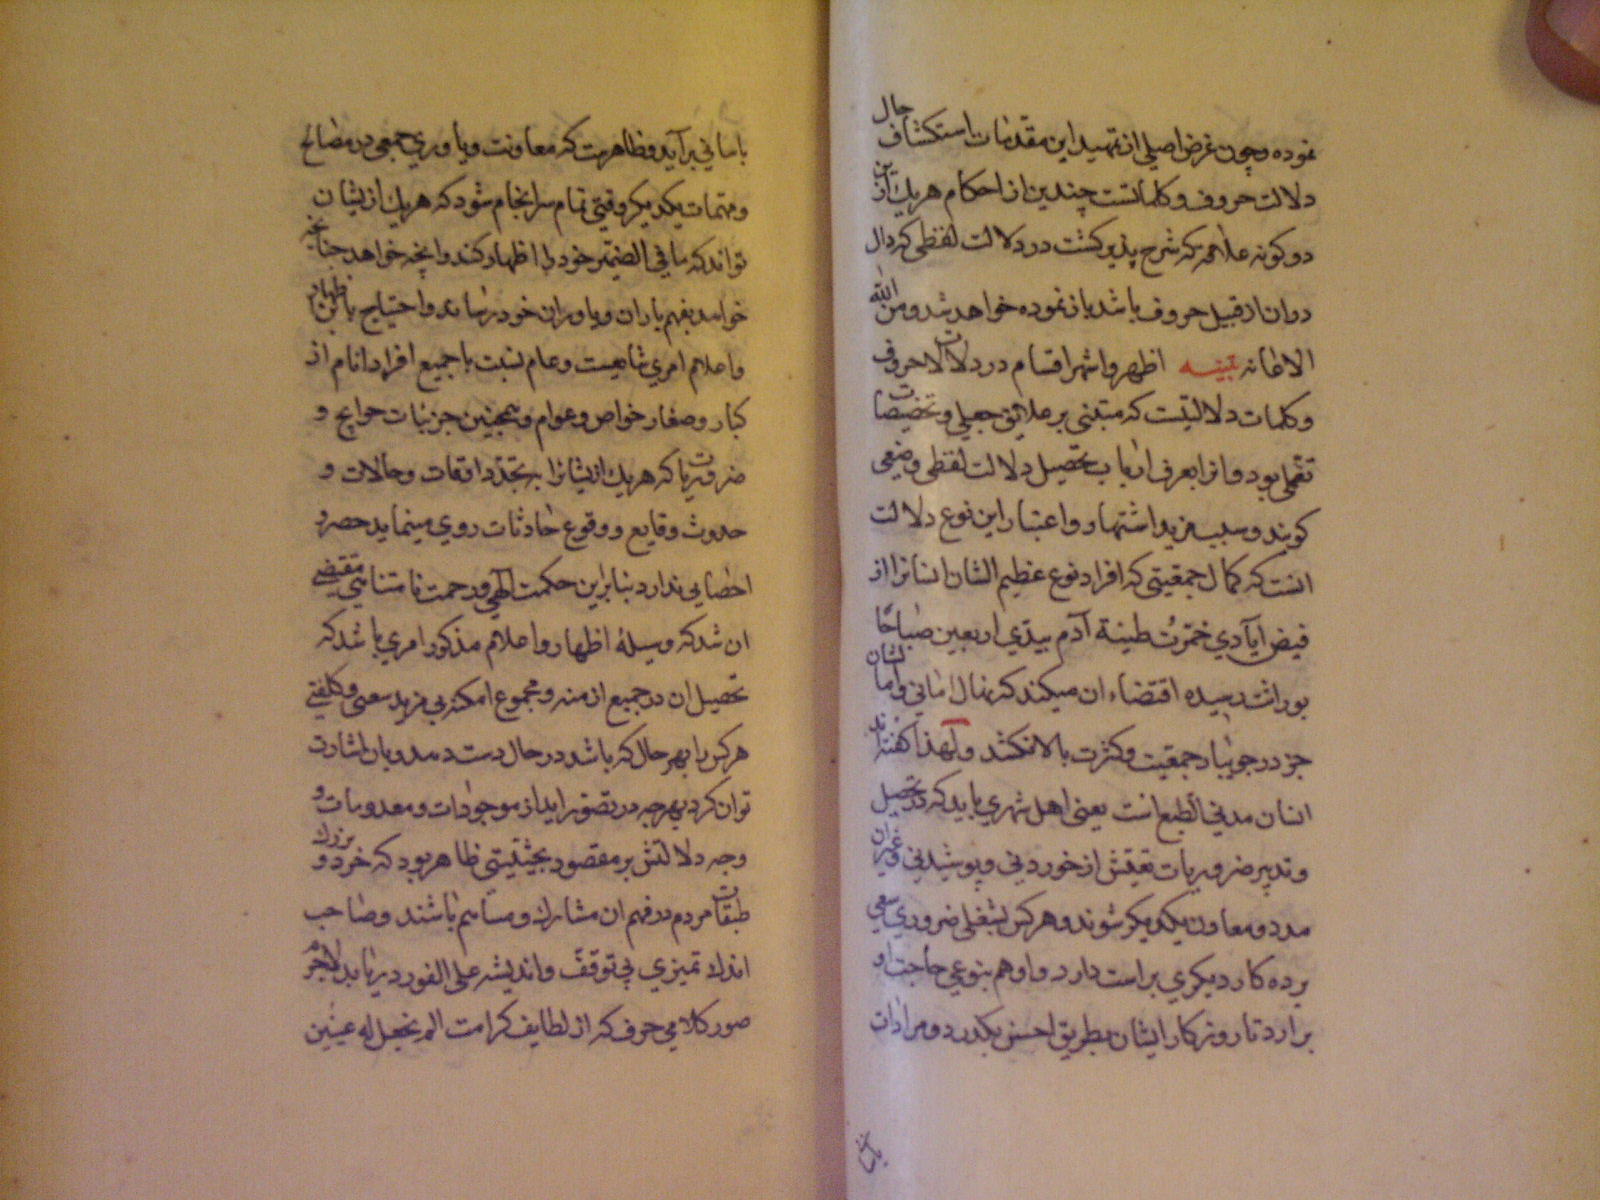 نموده و چون غرض اصلی از تمهید این مقدمات استکشاف حال
دلالت حروف و کلماتست چندین از احکام هر یك از این
دو کونه علاقه که شرح پذیر کشت در دلالت لفظی که دال
در ان از قبیل حروف باشد باز نموده خواهد شد و من الله
الاعانه تبنیه اظهر و اشهر اقسام در دلالات حروف
و کلمات دلالتیست که مبتنی بر علایق جعلی و تخصیصات
تعملی بود و انرا بعرف ارباب تحصیل دلالت لفظی وضعی
کویند و سبب مزید اشتهار و اعتبار این نوع دلالت
انست که کمال جمعیتی که افراد نوع عظیم الشان انسانرا از
فیض ایادی خمرت طینة آدم بیدی اربعین صباحًا
بوراثت رسیده اقتضاء ان میکند که نهال امانی و امالشان
جز در جویبار جمعیت و کثرت بالا نکشد و لهذا کفته اند
انسان مدنی الطبع است یعنی اهل شهری باید که در تحصیل
و تدبیر ضروریات تعیش از خوردنی و پوشیدنی و غیر ان
مدد و معاون یکدیکر شوند و هر کس بشغلی ضروری سعی
برده کار دیکری براست دارد و او هم بنوعی حاجت او
برارد تا روزکار ایشان بطریق احسن بکذرد و مرادات
باسانی
باسانی برآید و ظاهرست که معاونت و یاوری جمعی در مصالح
و مهمات یکدیکر وقتی تمام سرانجام شود که هر یك از ایشان
تواند که ما فی الضمیر خود را اظهار کند وانچه خواهد چنانچه
خواهد بفهم یاران و یاوران خود رساند و احتیاج باین اظهار
و اعلام امری شایعست و عام نسبت با جمیع افراد انام از
کبار و صغار خواص و عوام و همچنین جزئیات حوایج و
ضروریات که هر یك از ایشانرا بتجدد اوقات و حالات و
حدوث وقایع و وقوع حادثات روی مینماید حصر و
احصایی ندارد بنابراین حکمت الهی و رحمت نامتناهی مقتضی
ان شد که وسیلهٔ اظهار و اعلام مذکور امری باشد که
تحصیل ان در جمیع ازمنه و مجموع امکنه بی مزید سعی و کلفتی
هر کس را بهر حال که باشد در حال دست دهد و بان اشارت
توان کرد بهر چه در تصور اید از موجودات و معدومات و
وجه دلالتش بر مقصود بحیثیتی ظاهر بود که خرد و بزرك
طبقات مردم در فهم ان مشارك و مساهم باشند و صاحب
اندك تمیزی بی توقف و اندیشه علی الفور دریابد لاجرم
صور کلامی حرف که از لطایف کرامت الم نجعل له عینین